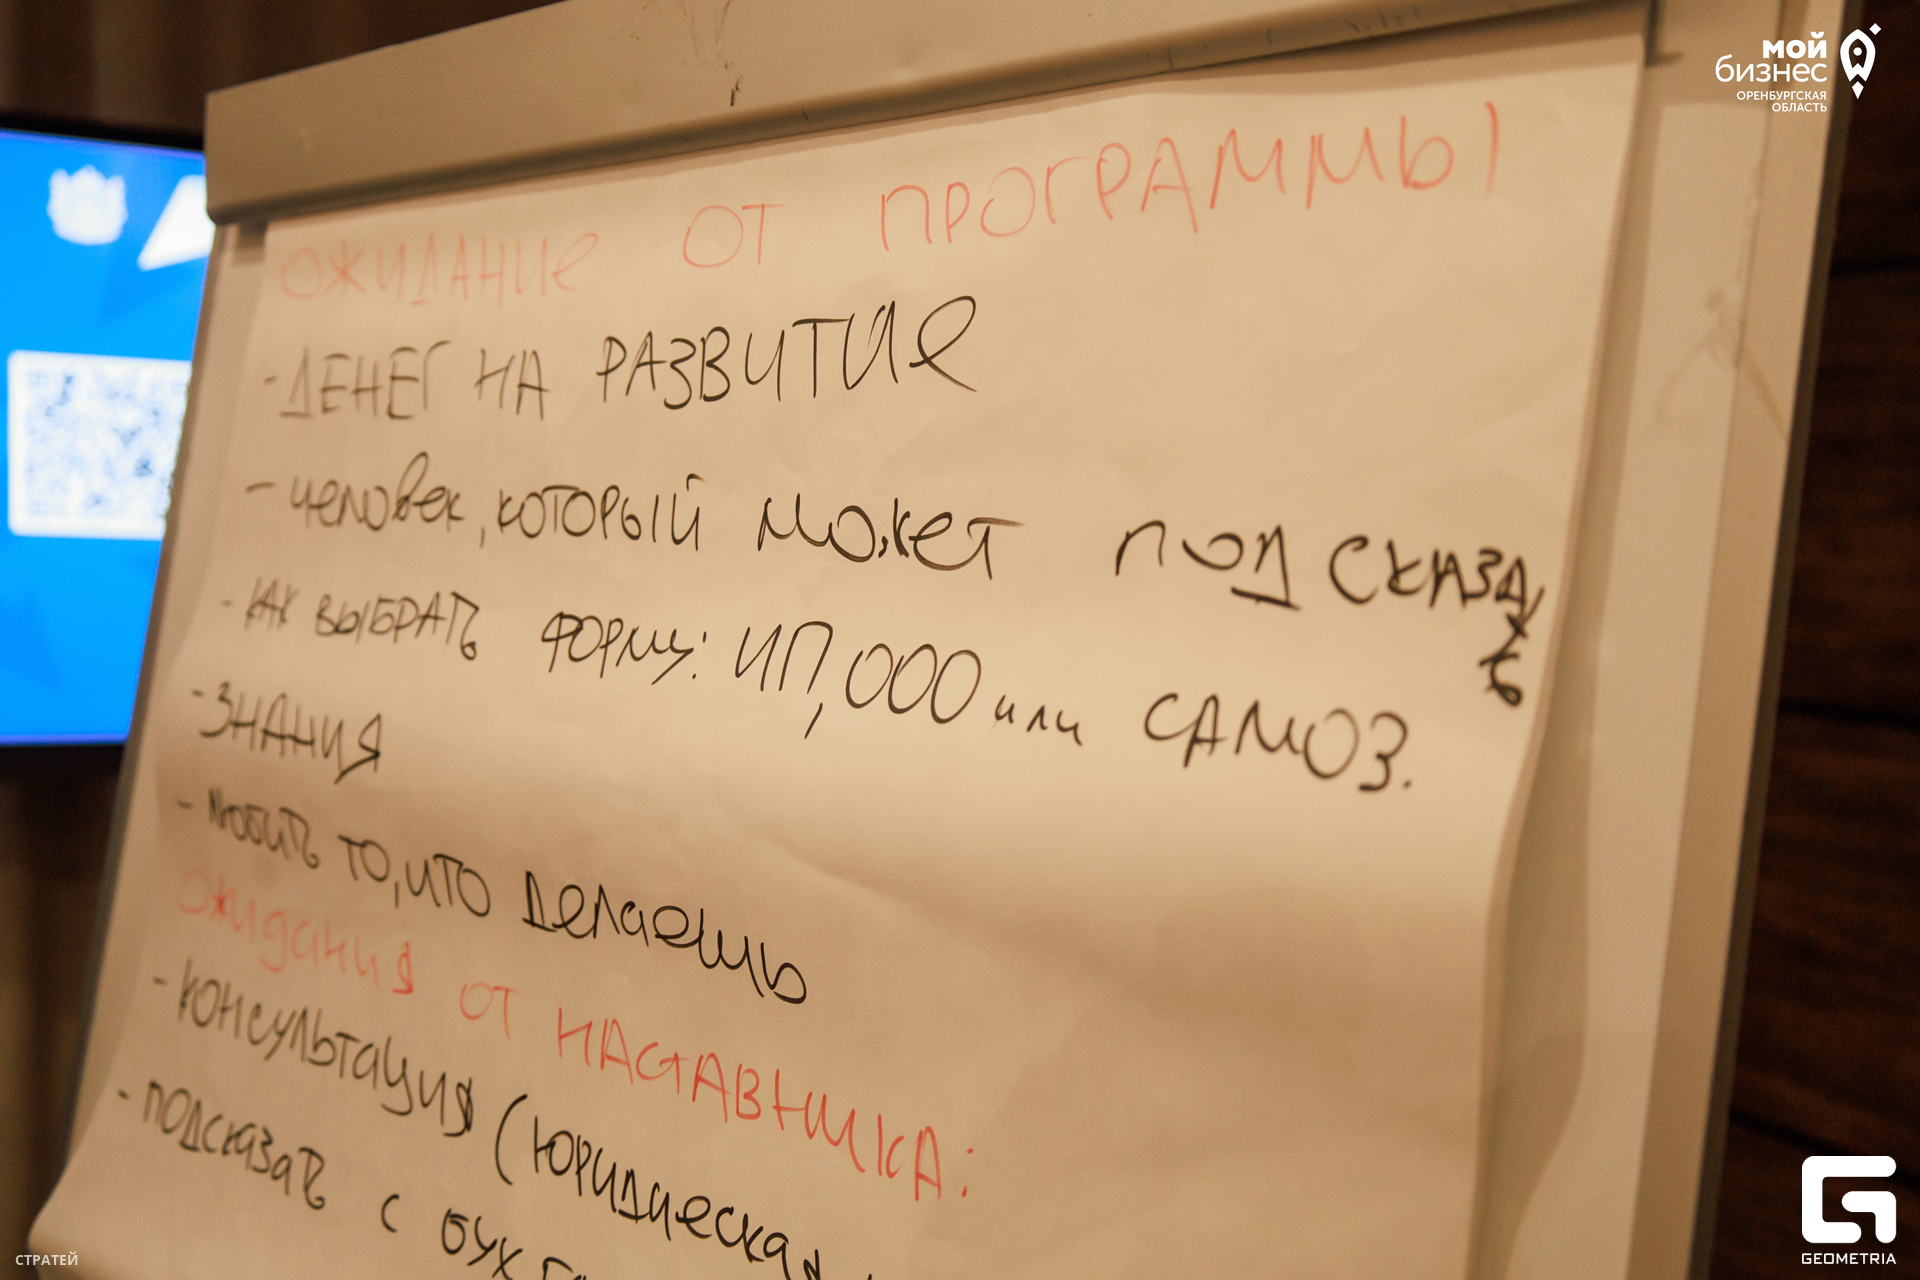 мой
бизнес
ОРЕНБУРГСКАЯ
ОБЛАСТЬ
ОЖИДАНИЕ ОТ ПРОГРАММЫ
- ДЕНЕГ НА РАЗВИТИЕ
- человек, который может подсказать
- КАК ВЫБРАТЬ ФОРМУ: ИП, ООО или САМОЗ.
- ЗНАНИЯ
- любить то, что делаешь
Ожидания от НАСТАВНИКА:
- консультация (юридическая
- подсказать с бухг
СТРАТЕЙ
GEOMETRIA